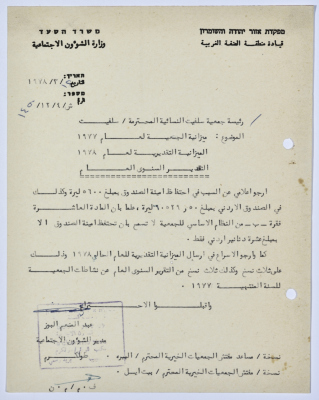 משרד הסעד
وزارة الشؤون الاجتماعية
מפקדת אזור יהודה והשומרון
قيادة منطقة الضفة الغربية
תאריך:
التاريخ: /٣/١٩٧٨
מספר:
رقم
رئيسة جمعية سلفيت النسائية المحترمة / سلفيت
الموضوع : ميزانية الجمعية لعام ١٩٧٧
الميزانية التقديرية لعام ١٩٧٨
التقرير السنوي العام
ارجو اعلامي عن السبب في احتفاظ امينة الصندوق بمبلغ ٥٦٠٠ ليرة وكذلك في
الصندوق الاردني بمبلغ ليرة، علما بان المادة العاشرة
فقرة من النظام الاساسي للجمعية لا تسمح بان تحتفظ امينة الصندوق الا
بمبلغ عشرة دنانير اردني فقط .
كما وارجو الاسراع في ارسال الميزانية التقديرية للعام الحالي ١٩٧٨ وذلك
على ثلاث نسخ وكذلك ثلاث نسخ عن التقرير السنوي العام عن نشاطات الجمعية
للسنة المنتهية ١٩٧٧ .
واقبلوا الاحترام
عبد الغني النوز
مدير الشؤون الاجتماعية
طولكرم
نسخة / مساعد مفتش الجمعيات الخيرية المحترم / البيرة
نسخة / مفتش الجمعيات الخيرية المحترم / بيت ايل .